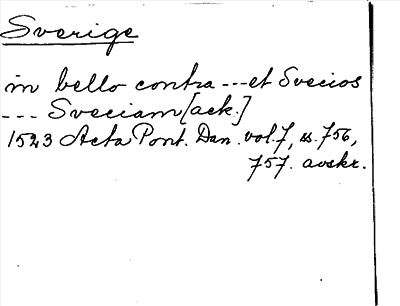 Sverige
in bello contra --- et Svecios
--- Sveciam [ack.]
1523 Acta Pont. Dan. vol. 7, ss. 756,
757. avskr.